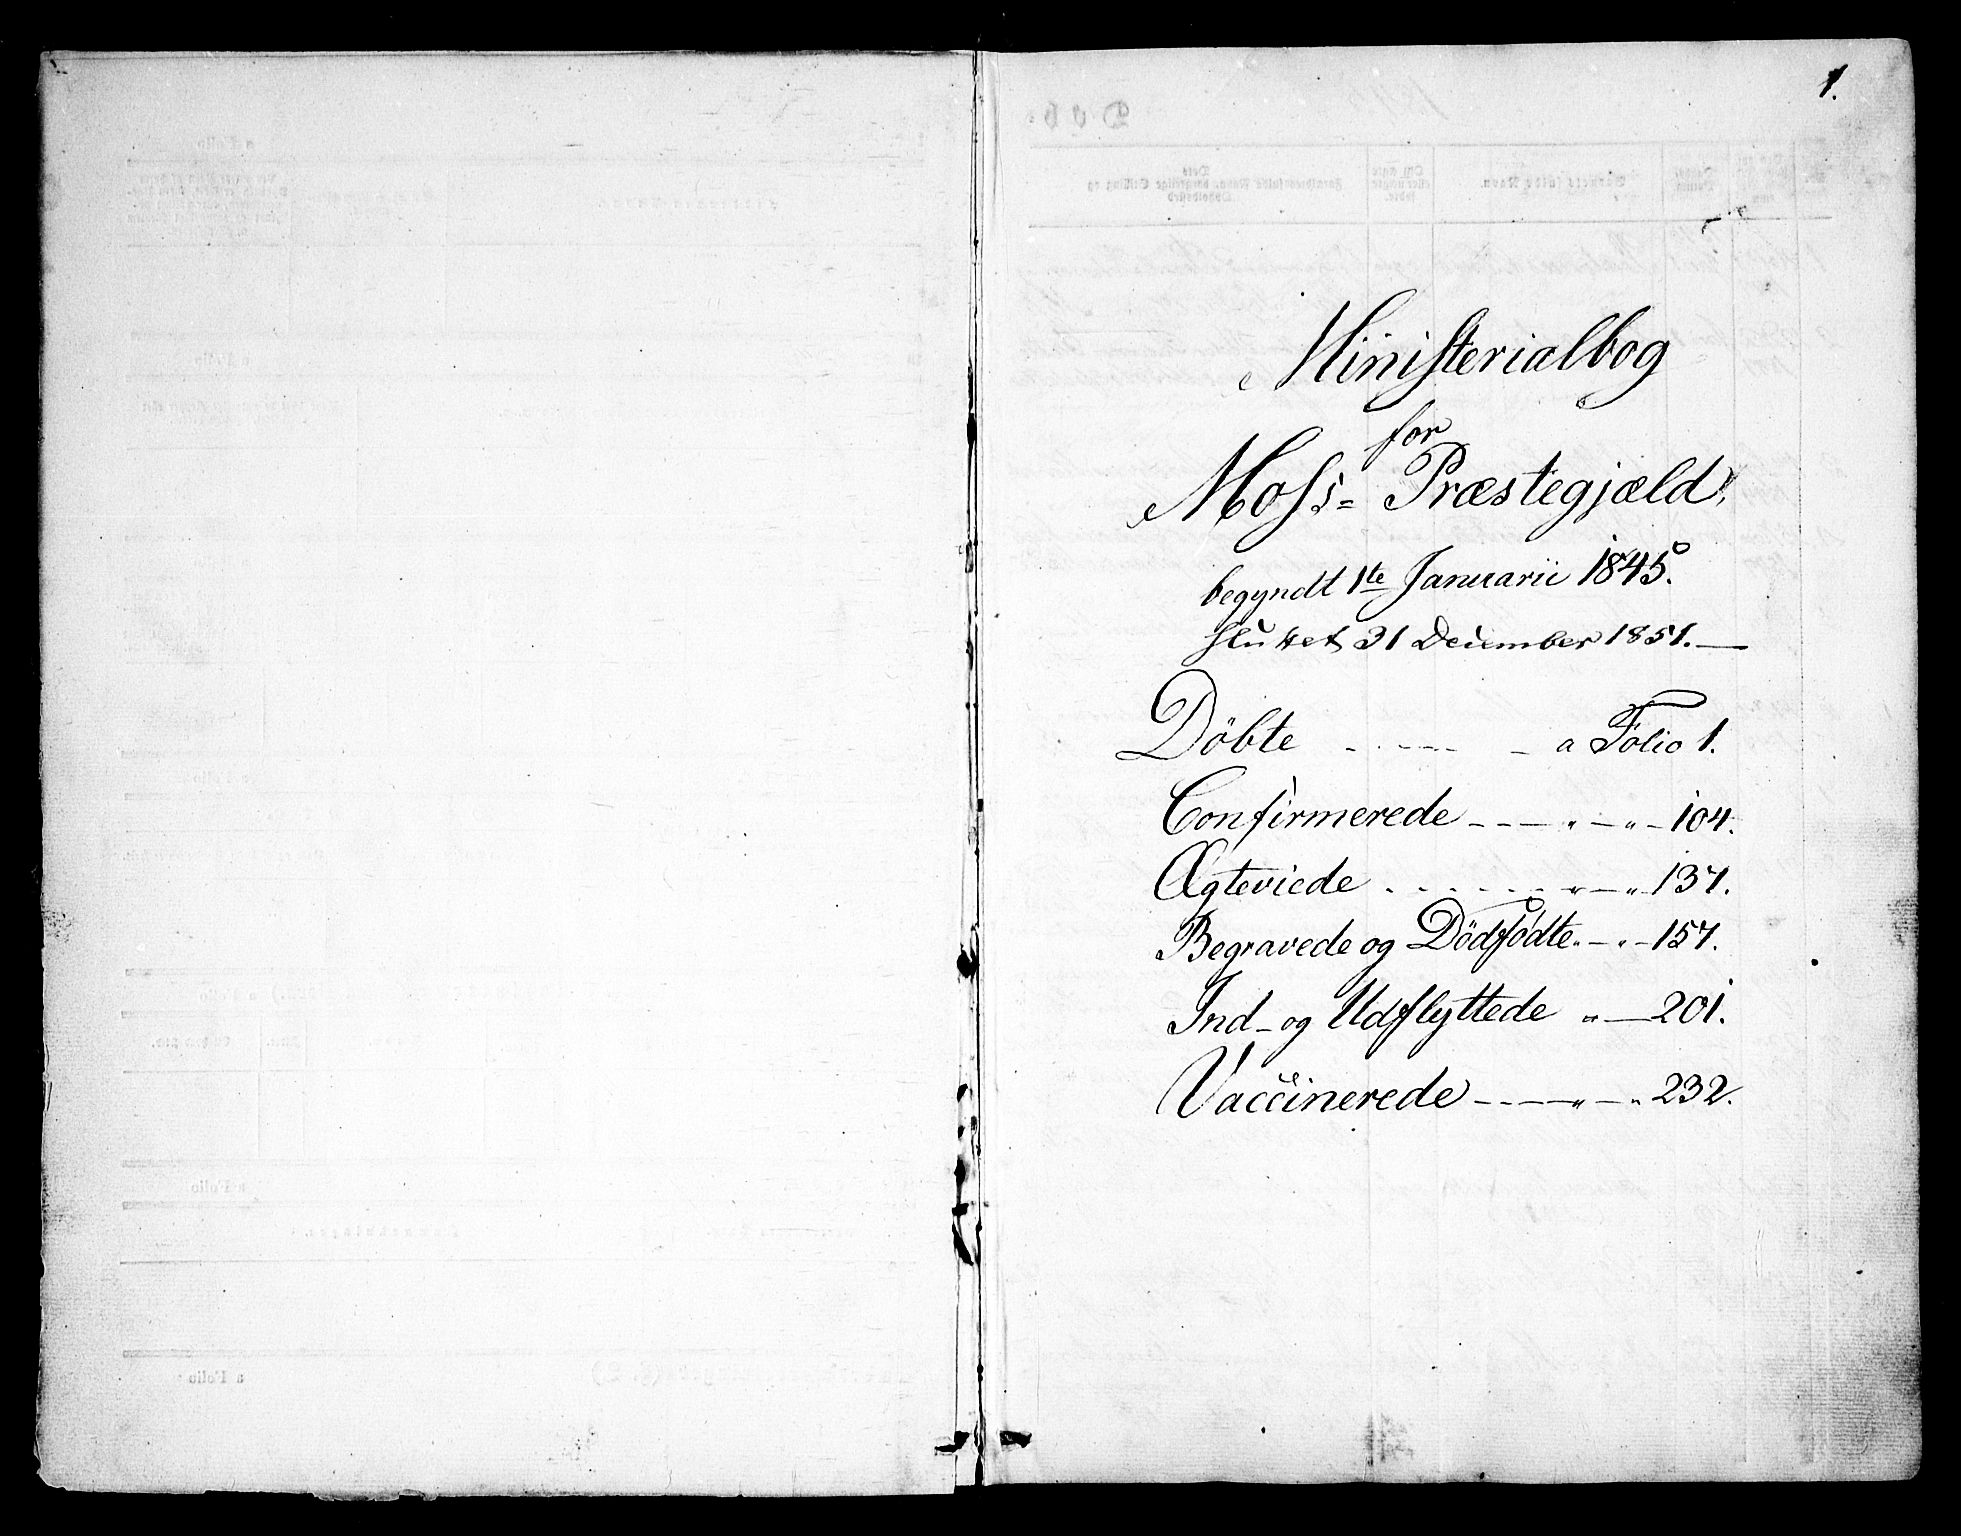 1.
Ministerialbog
for
Moss- Præstegjæld,
begyndt 1te Januarii 1845.
sluttet 31 December 1851.—
Döbte - - - - - - a Folio 1.
Confirmerede - - - " - " - 104.
Ægteviede . . . . . . . " - " 137.
Begravede og Dödfödte " - " - 157.
Ind- og Udflyttede " — 201.
Vaccinerede - - — " — " 232.